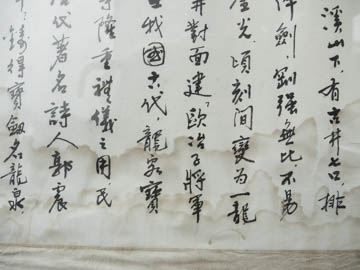 溪山下,有古井七口,排
件劍,劚强無比,不易
座光,頃刻間變為一龍
井對面建「歐冶子將軍
我國古代龍淵寶
隆重禮儀之用,民
唐代著名詩人郭震
鑄得寶劍名龍泉,